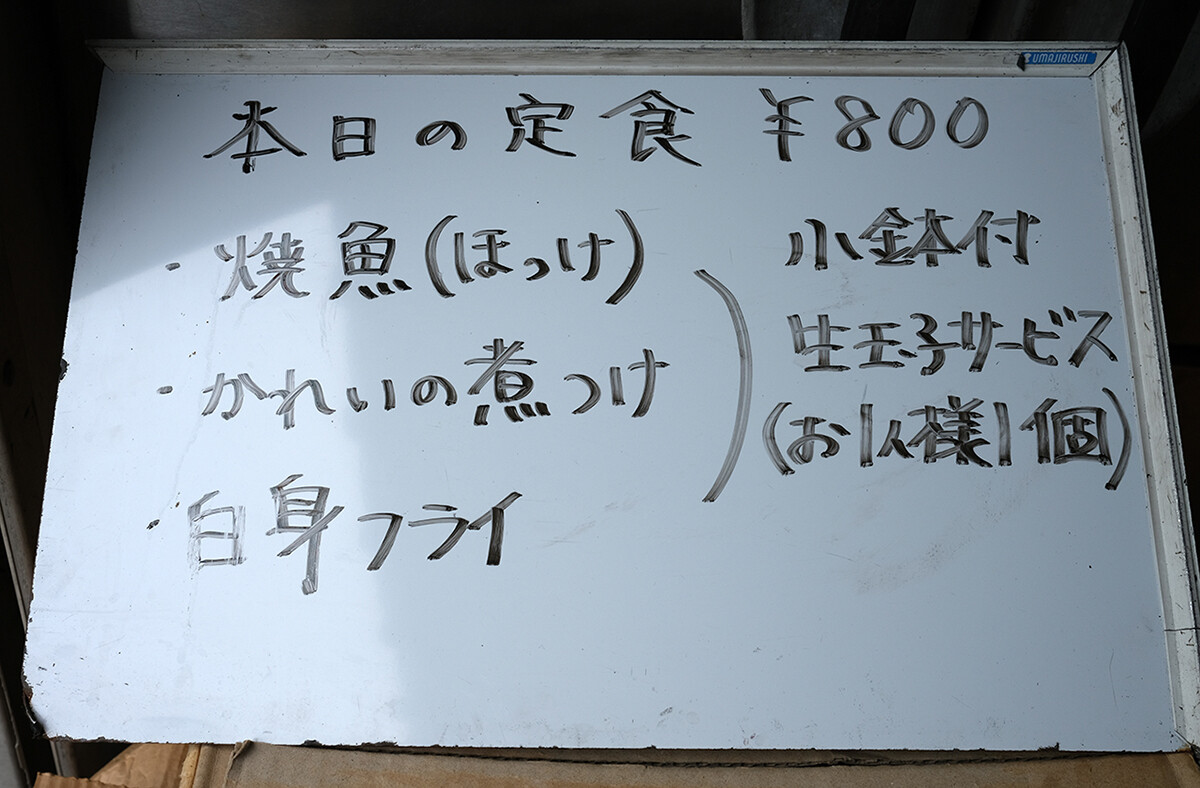 UMAJIRUSHI
本日の定食 ¥800
・焼魚(ほっけ)
・かれいの煮つけ
・白身フライ
小鉢付
生玉子サービス
(お1人様1個)